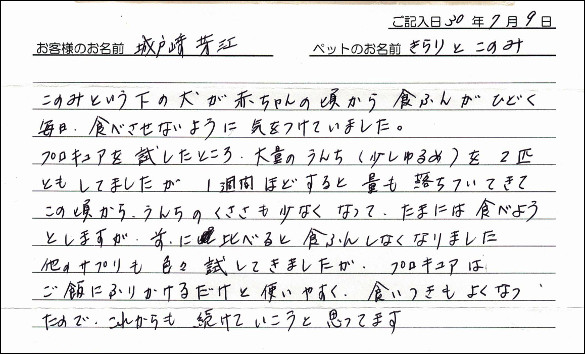 ご記入日 30 年 7 月 9 日
お客様のお名前 城戸崎 芳江 ペットのお名前 きらりと このみ
このみという下の犬が赤ちゃんの頃から 食ふんがひどく
毎日、食べさせないように 気をつけていました。
プロキュアを 試したところ、大量のうんち(少しゆるめ)を 2匹
ともしてましたが 1週間ほどすると 量も 落ちついてきて
この頃から、うんちの くささも少なく なって、たまには 食べよう
としますが、前に 比べると 食ふんしなくなりました
他のサプリも 色々 試してきましたが、プロキュアは
ご飯にふりかけるだけと 使いやすく、食いつきもよくなっ
たので、これからも 続けていこうと 思ってます